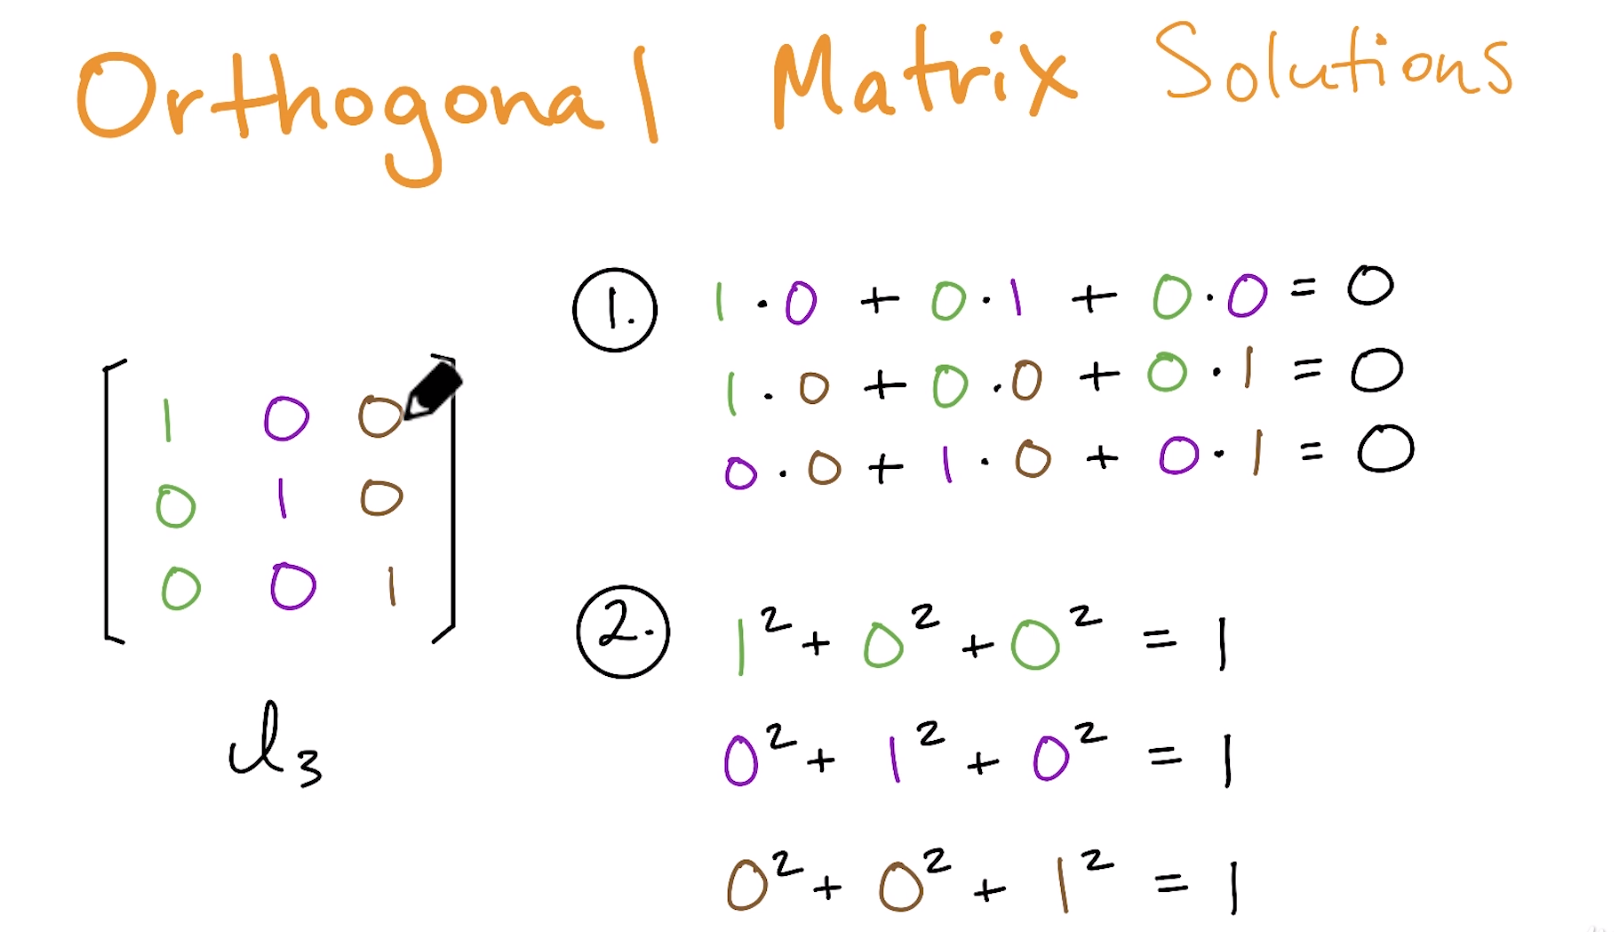 Orthogonal Matrix Solutions
1. 1 · 0 + 0 · 1 + 0 · 0 = 0
1 · 0 + 0 · 0 + 0 · 1 = 0
0 · 0 + 1 · 0 + 0 · 1 = 0
1 0 0
0 1 0
0 0 1
I₃
2. 1² + 0² + 0² = 1
0² + 1² + 0² = 1
0² + 0² + 1² = 1